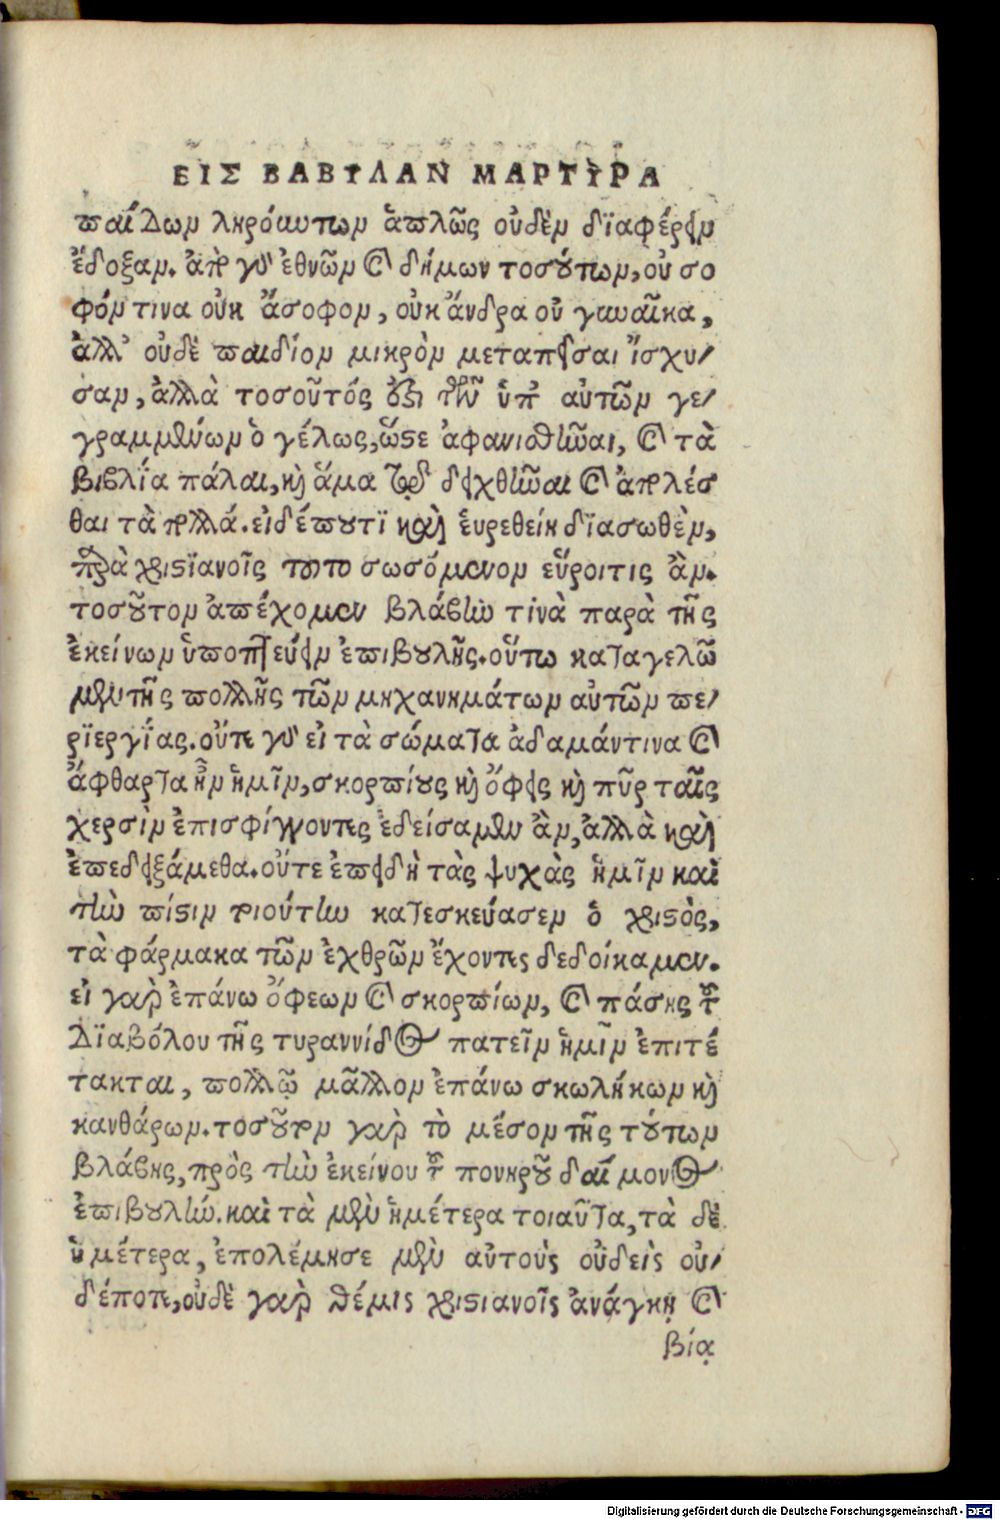 ΕΙΣ ΒΑΒΥΛΑΝ ΜΑΡΤΥΡΑ
παίδων ληρούντων ἁπλῶς οὐδὲν διαφέρειν
ἔδοξαν. ἀπὸ γὸ ἐθνῶν καὶ δήμων τοσούτων, οὐ σο
φόν τινα οὐκ ἄσοφον, οὐκ ἄνδρα οὐ γυναῖκα,
ἀλλ' οὐδὲ παιδίον μικρὸν μεταπεῖσαι ἴσχυ-
σαν, ἀλλὰ τοσοῦτός ἐστι τῶν ὑπ' αὐτῶν γε-
γραμμένων ὁ γέλως, ὥστε ἀφανισθῆναι, καὶ τὰ
βιβλία πάλαι, καὶ ἅμα τῷ δειχθῆναι καὶ ἀπολέσ
θαι τὰ πολλά. εἰ δέ που τι καὶ εὑρεθείη διασωθὲν,
παρὰ χριστιανοῖς τοῦτο σωσόμενον εὕροι τις ἂν.
τοσοῦτον ἀπέχομεν βλάβην τινὰ παρὰ τῆς
ἐκείνων ὑποπτεύειν ἐπιβουλῆς. οὕτω καταγελῶ
μεν τῆς πολλῆς τῶν μηχανημάτων αὐτῶν πε-
ριεργίας. οὔτε γὸ εἰ τὰ σώματα ἀδαμάντινα καὶ
ἄφθαρτα ἦν ἡμῖν, σκορπίους καὶ ὄφεις καὶ πῦρ ταῖς
χερσὶν ἐπισφίγγοντες ἐδείσαμεν ἂν, ἀλλὰ καὶ
ἐπεδειξάμεθα. οὔτε ἐπειδὴ τὰς ψυχὰς ἡμῖν καὶ
τὴν πίστιν τοιούτην κατεσκεύασεν ὁ χριστὸς,
τὰ φάρμακα τῶν ἐχθρῶν ἔχοντες δεδοίκαμεν.
εἰ γὰρ ἐπάνω ὄφεων καὶ σκορπίων, καὶ πάσης τοῦ
διαβόλου τῆς τυραννίδος πατεῖν ἡμῖν ἐπιτέ
τακται, πολλῷ μᾶλλον ἐπάνω σκωλήκων καὶ
κανθάρων. τοσοῦτον γὰρ τὸ μέσον τῆς τούτων
βλάβης, πρὸς τὴν ἐκείνου τοῦ πονηροῦ δαίμονος
ἐπιβουλήν. καὶ τὰ μὲν ἡμέτερα τοιαῦτα, τὰ δὲ
ὑμέτερα, ἐπολέμησε μὲν αὐτοὺς οὐδεὶς οὐ-
δέποτε, οὐδὲ γὰρ θέμις χριστιανοῖς ἀνάγκῃ καὶ
βίᾳ
Digitalisierung gefördert durch die Deutsche Forschungsgemeinschaft - DFG